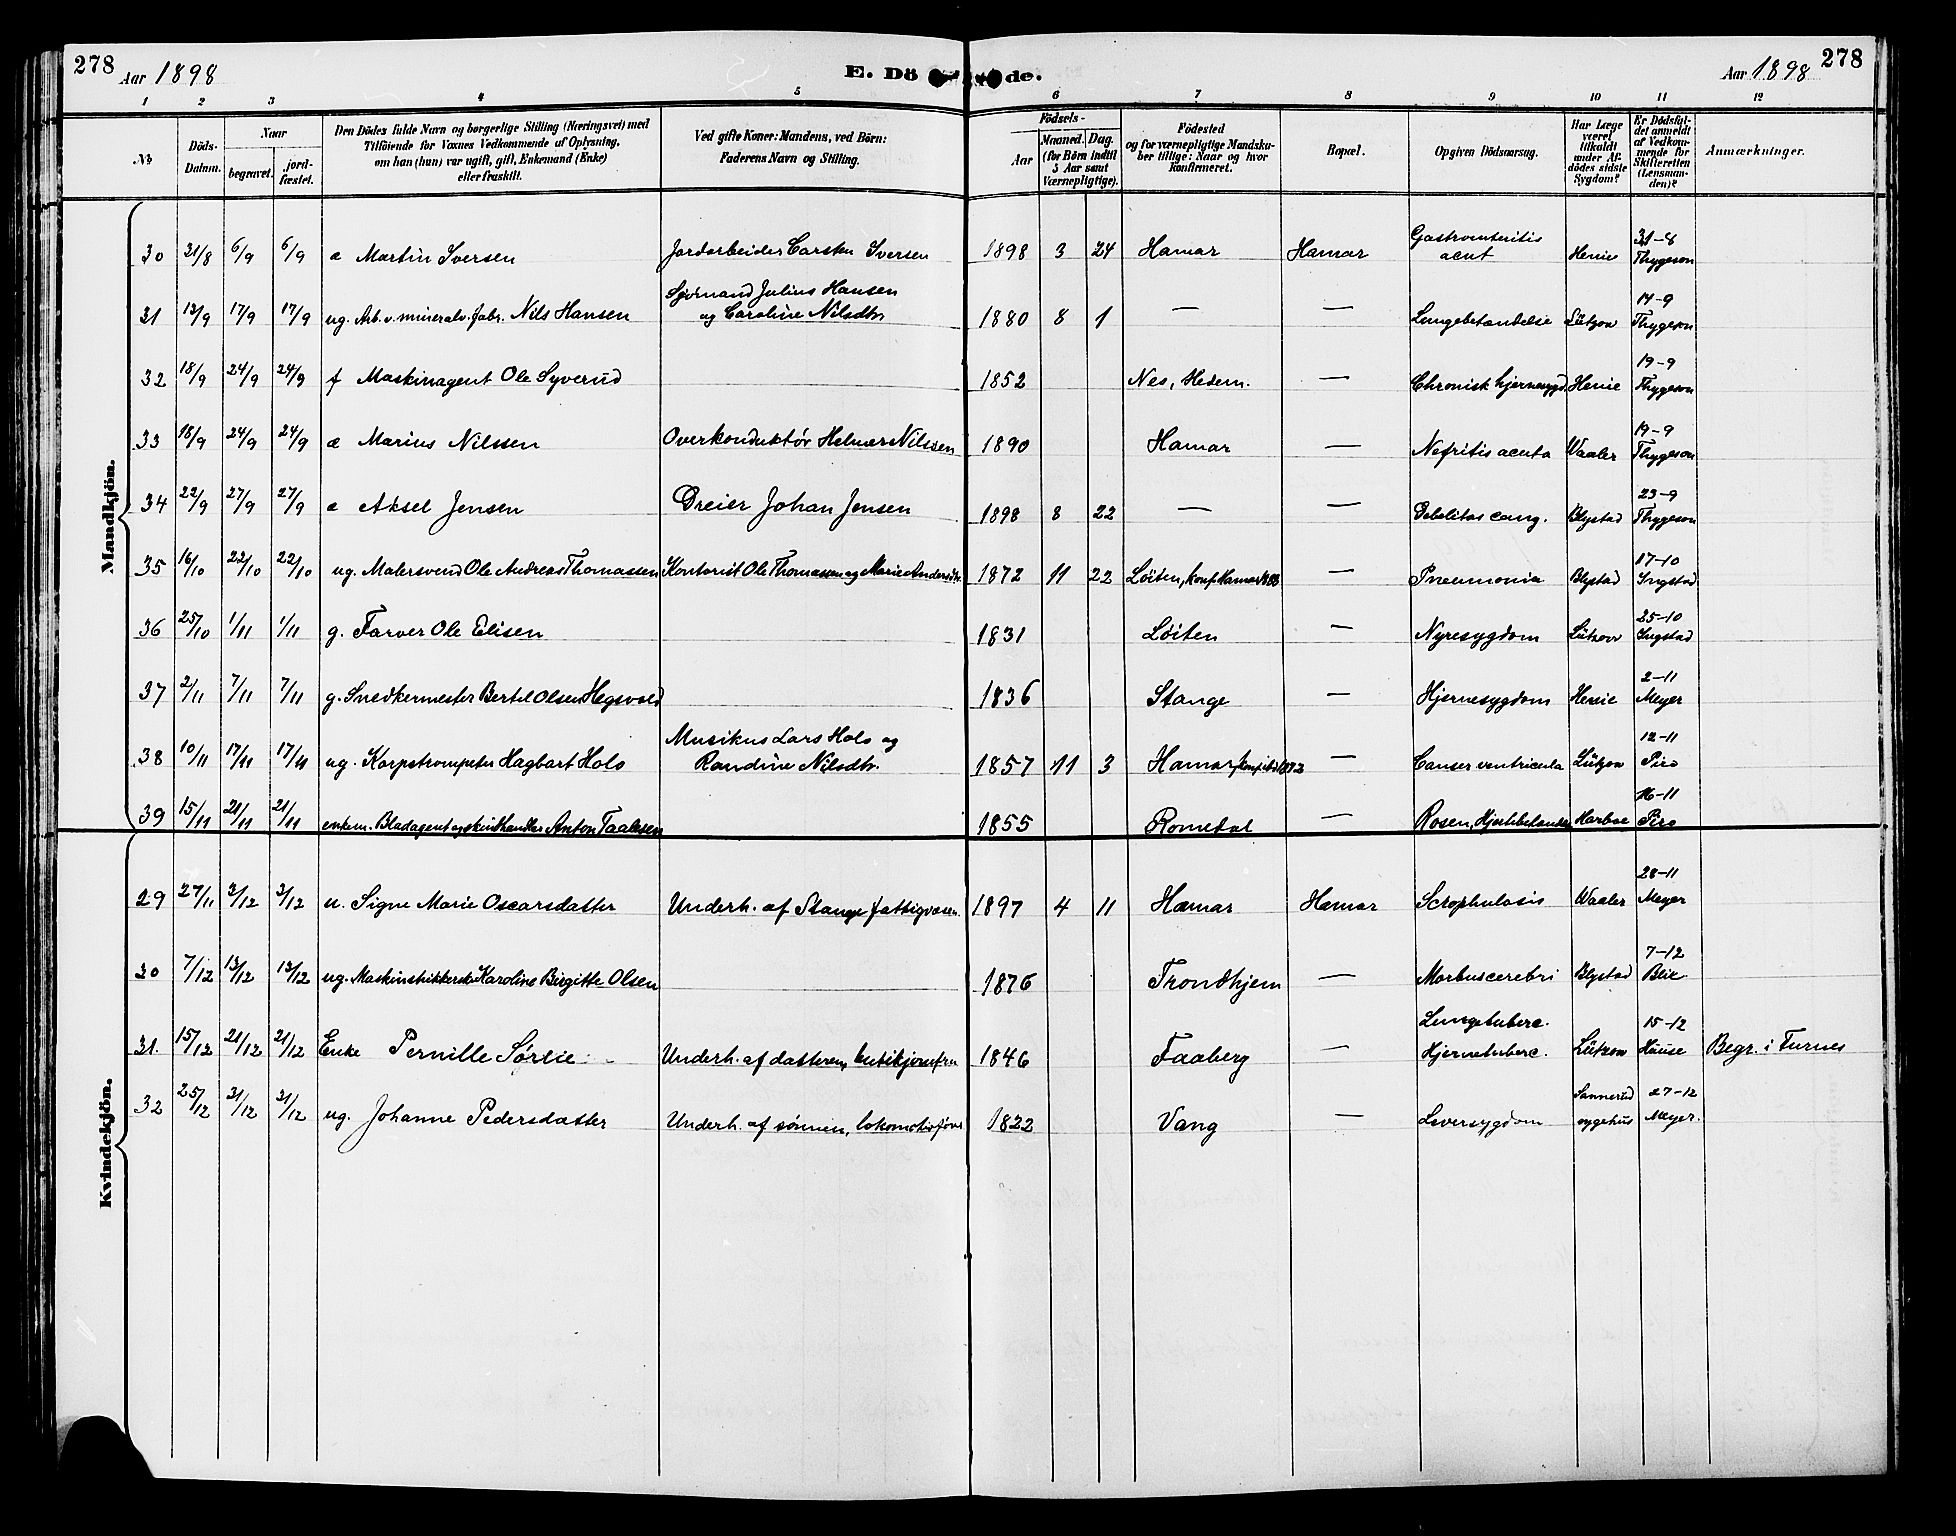 278
Aar 1898
E. Dö de.
Aar 1898
278
1 2 3 4 5 6 7 8 9 10 11 12
No
Döds-Datum.
Naar
begravet.
jordfæstet.
Den Dödes fulde Navn og borgerlige Stilling (Næringsvei) med
Tilföiende for Voxnes Vedkommende af Oplysning,
om han (hun) var ugift, gift, Enkemand (Enke)
eller fraskilt.
Ved gifte Koner: Mandens, ved Börn:
Faderens Navn og Stilling.
Födsels-
Aar
Maaned. Dag.
(for Börn indtil
5 Aar samt
Værnepligtige).
Födested
og for værnepligtige Mandsku-
ber tillige: Naar og hvor
Konfirmeret.
Bopæl.
Opgiven Dödsaarsag.
Har Læge
været
tilkaldt
under Af-
dödes sidste
Sygdom?
Er Dödsful-
det anmeldt
af Vedkom-
mende for
Skifteretten
(Lensman-
den)?
Anmærkninger.
Mandkjön.
30 31/8 6/9 6/9 æ Martin Iversen Jordarbeider Carsten Iversen 1898 3 24 Hamar Hamar Gastroenteritis acut Henie 31-8 Thygeson
31 13/9 17/9 17/9 ug. Arb. v. mineralv. fabr. Nils Hansen Sjømand Julius Hansen og Caroline Nilsdtr. 1880 8 1 — — Lungebetændelse Lützow 14-9 Thygeson
32 18/9 24/9 24/9 f Maskinagent Ole Syverud 1852 Nes, Hedem. — Chronisk hjernesygd. Henie 19-9 Thygeson
33 18/9 24/9 24/9 æ Marius Nilssen Overkonduktør Helmer Nilssen 1890 Hamar — Nefritis acuta Waaler 19-9 Thygeson
34 22/9 27/9 27/9 æ Aksel Jensen Dreier Johan Jensen 1898 8 22 — — Debelitas cong. Blystad 23-9 Thygeson
35 16/10 22/10 22/10 ug. Malersvend Ole Andreas Thomassen Kontorist Ole Thomassen og Marie Andersdtr. 1872 11 22 Løiten, konf. Hamar — Pneumonia Blystad 17-10 Ingstad
36 25/10 1/11 1/11 g. Farver Ole Elisen 1831 Løiten — Nyresygdom Lützow 25-10 Ingstad
37 2/11 7/11 7/11 g. Snedkermester Bertel Olsen Hegsvold 1836 Stange — Hjernesygdom Henie 2-11 Meyer
38 10/11 17/11 17/11 ug. Korpstrompeter Hagbart Hols Musikus Lars Hols og Randine Nilsdtr. 1857 11 3 Hamar, konf. 1872 — Canser ventricula Lützow 12-11 Piro
39 15/11 21/11 21/11 enkem. Bladagent og skindhandler Anton Taalesen 1855 Romedal — Rosen, Hjertebetændelse Harboe 16-11 Piro
Kvindekjön.
29 27/11 3/12 3/12 u. Signe Marie Oscarsdatter Underh. af Stange fattigvæsen. 1897 4 11 Hamar Hamar Scrophulosis Waaler 28-11 Meyer
30 7/12 13/12 13/12 ug. Maskinstrikkerske Karoline Birgitte Olsen 1876 Trondhjem — Morbus cerebri Blystad 7-12 Blix
31. 15/12 21/12 21/12 Enke Pernille Sørlie Underh. af datteren, butikjomfru 1846 Faaberg — Lungetuberc. Hjernetuberc. Lützow 15-12 Hause Begr. i Furnes
32 25/12 31/12 31/12 ug. Johanne Pedersdatter Underh. af sønnen, lokomotivfører 1822 Vang — Leversygdom Sannerud sygehus 27-12 Meyer.